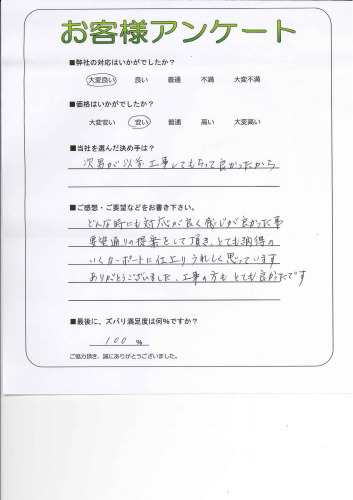 お客様アンケート
■弊社の対応はいかがでしたか？
大変良い 良い 普通 不満 大変不満
■価格はいかがでしたか？
大変安い 安い 普通 高い 大変高い
■当社を選んだ決め手は？
次男が以前工事してもらって良かったから
■ご感想・ご要望などをお書き下さい。
どんな時にも対応が良く感じが良かった事
要望通りの提案をして頂き、とても納得の
いくカーポートに仕上りうれしく思っています
ありがとうございました、工事の方もとても良かったです
■最後に、ズバリ満足度は何%ですか？
100 %
ご協力頂き、誠にありがとうございました。